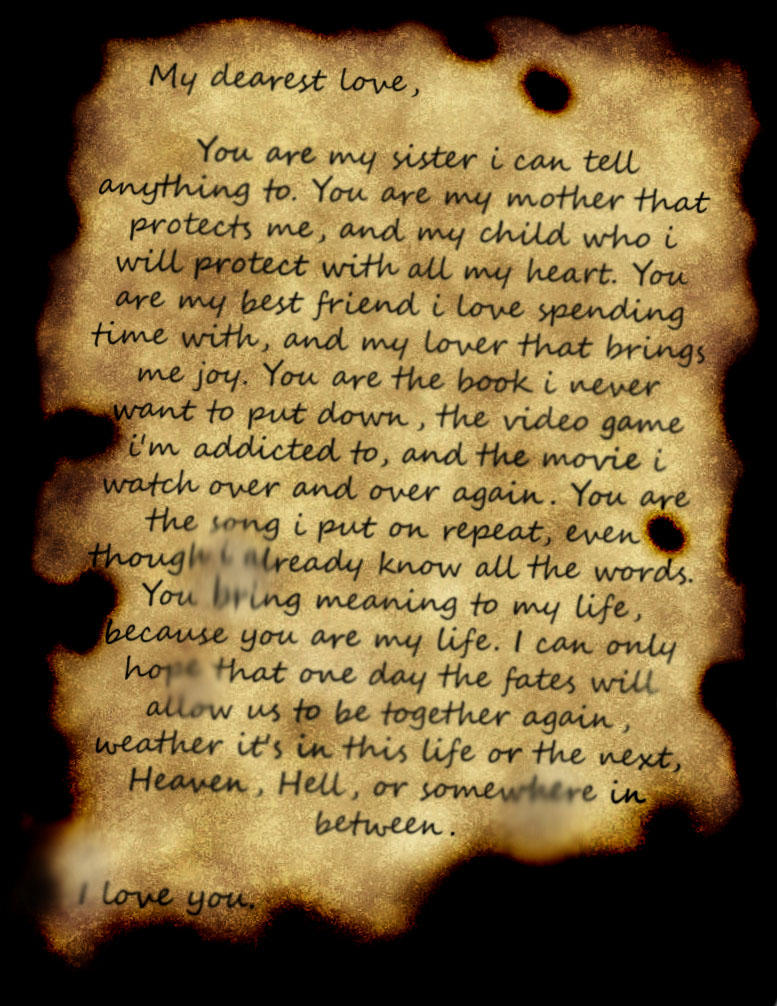 My dearest love,
You are my sister i can tell
anything to. You are my mother that
protects me, and my child who i
will protect with all my heart. You
are my best friend i love spending
time with, and my lover that brings
me joy. You are the book i never
want to put down, the video game
i'm addicted to, and the movie i
watch over and over again. You are
the song i put on repeat, even
though i already know all the words.
You bring meaning to my life,
because you are my life. I can only
hope that one day the fates will
allow us to be together again,
weather it's in this life or the next,
Heaven, Hell, or somewhere in
between.
I love you.